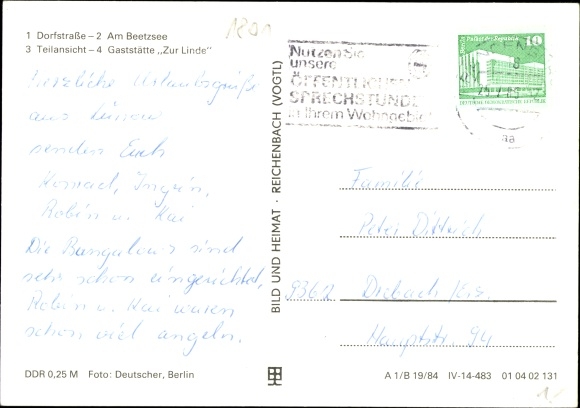 1 Dorfstraße – 2 Am Beetzsee
3 Teilansicht – 4 Gaststätte „Zur Linde"
Herzliche Urlaubsgrüße
aus
senden Euch
Ingrin,
Robin u. Kai
Die Bungalows sind
sehr schön eingerichtet,
Robin u. Kai waren
schon viel angeln.
DDR 0,25 M Foto: Deutscher, Berlin
BILD UND HEIMAT · REICHENBACH (VOGTL)
Nutzen Sie
unsere
ÖFFENTLICHEN
SPRECHSTUNDE
in Ihrem Wohngebiet
Palast der Republik
10
DEUTSCHE DEMOKRATISCHE REPUBLIK
Familie
Peter Dittrich
9362 Drebach/Erz.
Hauptstr. 94
A 1/B 19/84 IV-14-483 01 04 02 131